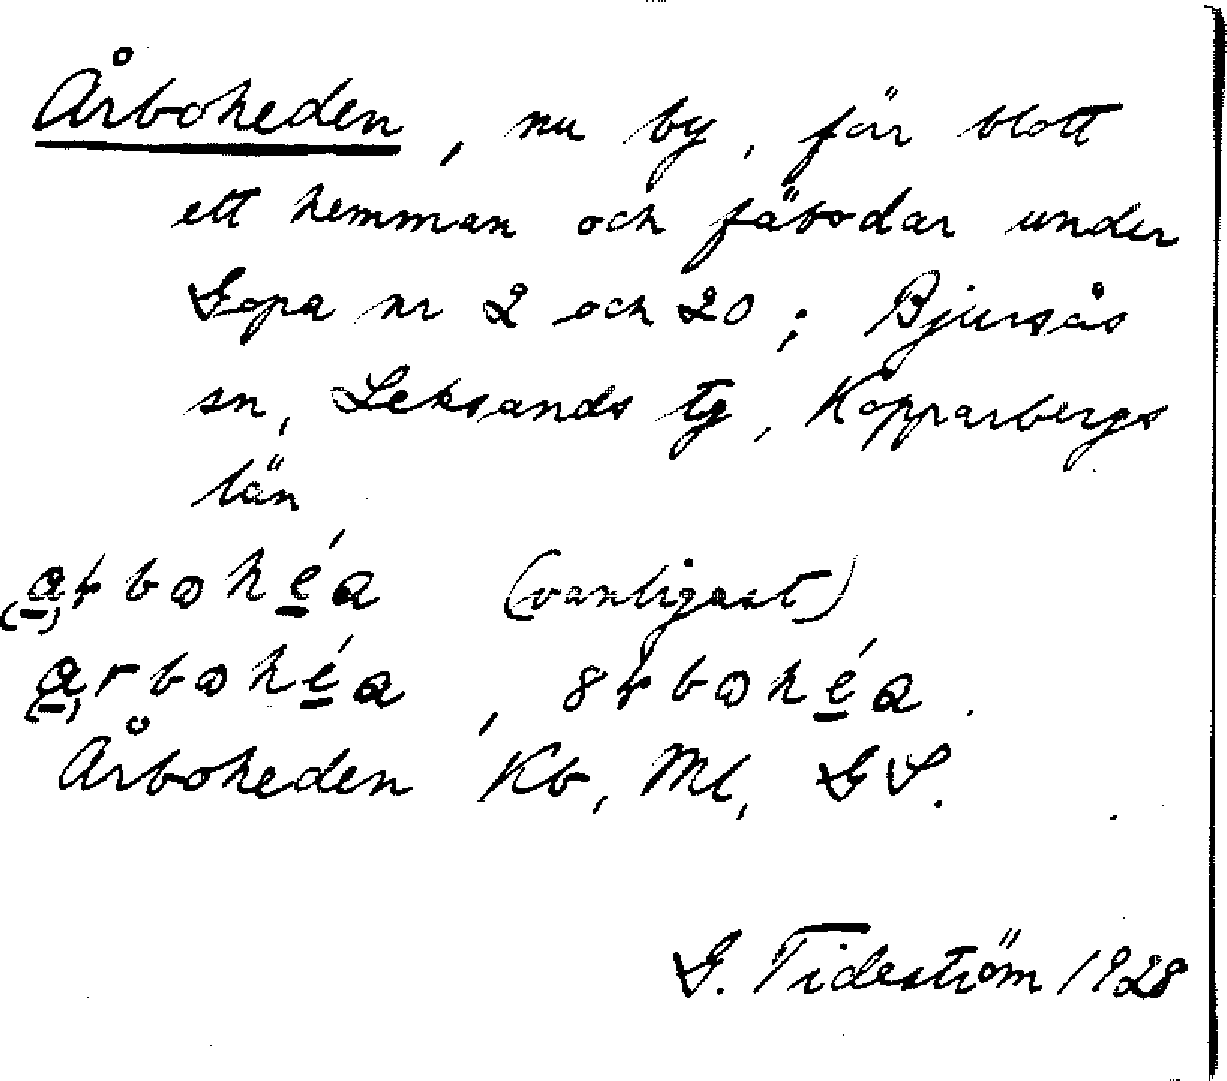 Årboheden, nu by, förr blott
ett hemman och fäbodar under
Gopa nr 2 och 20; Bjursås
sn, Leksands tg, Kopparbergs
län
(vanligast)
Årboheden Kb, Ml, GS.
G. Tideström 1928